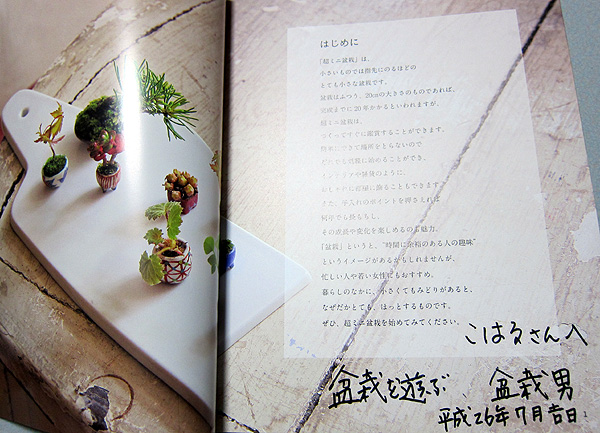 はじめに
「超ミニ盆栽」は、
小さいものでは指先にのるほどの
とても小さな盆栽です。
盆栽はふつう、20cmの大きさのものであれば、
完成までに20年かかるといわれますが、
超ミニ盆栽は、
つくってすぐに鑑賞することができます。
簡単にできて場所をとらないので
どなたでも気軽に始めることができ、
インテリアや雑貨のように、
おしゃれにお部屋に飾ることもできます。
また、手入れのポイントを押さえれば
何年でも長もちし、
その成長や変化を楽しめるのも魅力。
「盆栽」というと、“時間に余裕のある人の趣味”
というイメージがあるかもしれませんが、
忙しい人や若い女性にもおすすめ。
暮らしのなかに、小さくてもみどりがあると、
なぜだかとても、ほっとするものです。
ぜひ、超ミニ盆栽を始めてみてください。
こはるさんへ
盆栽を遊ぶ 盆栽男
平成26年7月吉日